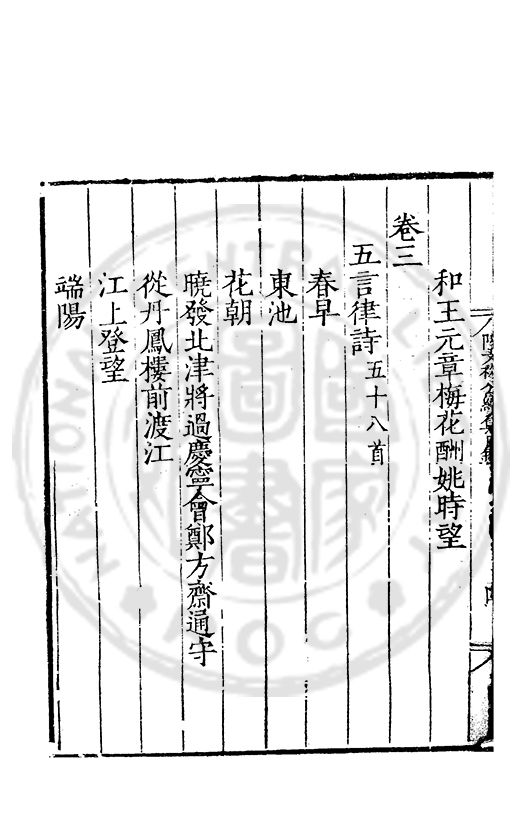 和王元章梅花酬姚時望
卷三
五言律詩五十八首
春早
東池
花朝
曉發北津將過慶寧會鄭方齋通守
從丹鳳樓前渡江
江上登望
端陽
NATIONAL CENTRAL LIBRARY